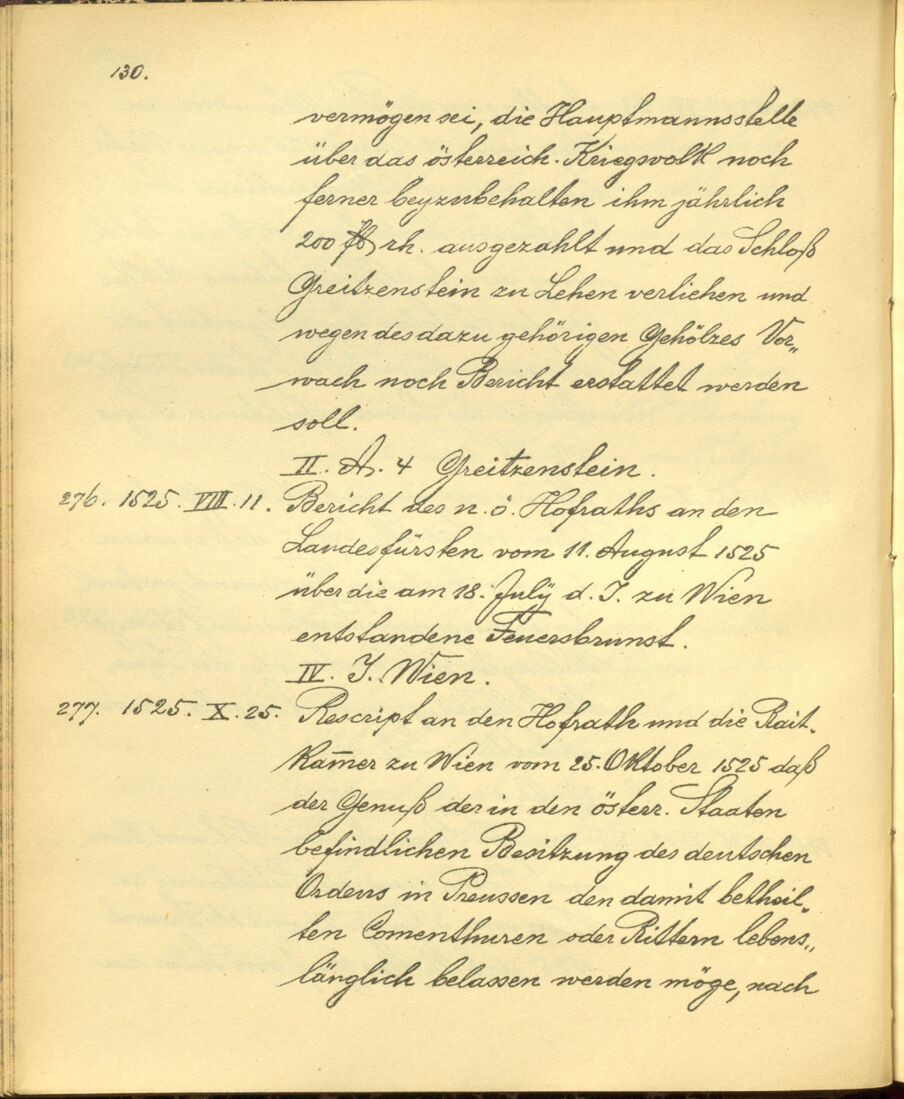 130.
vermögen sei, die Hauptmannsstelle
über das österreich. Kriegsvolk noch
ferner beyzubehalten ihm jährlich
200 fl rh. ausgezahlt und das Schloß
Greitzenstein zu Lehen verliehen und
wegen des dazu gehörigen Gehölzes Vor„
wach noch Bericht erstattet werden
soll.
II. A. 4 Greitzenstein.
276. 1525. VIII. 11. Bericht des n. ö. Hofraths an den
Landesfürsten vom 11. August 1525
über die am 18. Julÿ d. J. zu Wien
entstandene Feuersbrunst.
IV. J. Wien.
277. 1525. X. 25. Rescript an den Hofrath und die Rait-
kam̄er zu Wien vom 25. Oktober 1525 daß
der Genuß der in den österr. Staaten
befindlichen Besitzung des deutschen
Ordens in Preussen den damit betheil-
ten Comenthuren oder Rittern lebens„
länglich belassen werden möge, nach